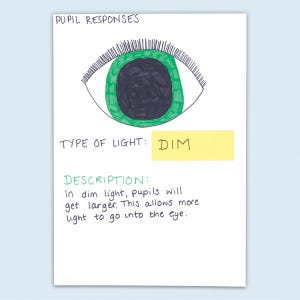 PUPIL RESPONSES
TYPE OF LIGHT: DIM
DESCRIPTION:
In dim light, pupils will
get larger. This allows more
light to go into the eye.